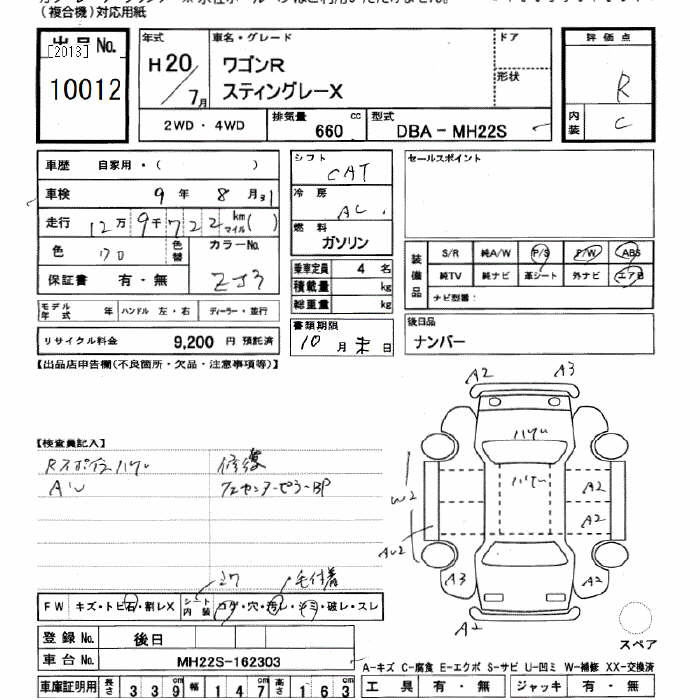 （複合機）対応用紙
出品No.
[2013]
10012
年式
H20/7月
車名・グレード
ワゴンR
スティングレーX
ドア
形状
評価点
R
内装
C
2WD・4WD
排気量 660 cc
型式 DBA－MH22S
車歴 自家用・( )
車検 9年 8月31
走行 12万9千722 km マイル( )
色 クロ
色替
カラーNo.
ZJ3
保証書 有・無
モデル年式 年 ハンドル 左・右 ディーラー・並行
リサイクル料金 9,200 円 預託済
シフト
CAT
冷房
AC
燃料
ガソリン
乗車定員 4 名
積載量 kg
総重量 kg
書類期限
10月末日
セールスポイント
装備品
S/R 純A/W P/S P/W ABS
純TV 純ナビ 革シート 外ナビ エアB
ナビ型番：
後日品
ナンバー
【出品店申告欄(不良箇所・欠品・注意事項等)】
【検査員記入】
Rスポイラーハゲ 修復
AW
A2
A3
ハゲ
ハゲ
W2
A2
A2
AW2
A3
A2
A2
スペア
FW キズ・トビ石・割レX
シート内装 コゲ・穴・汚レ・シミ・破レ・スレ
登録No. 後日
車台No. MH22S-162303
車庫証明用 長さ 339cm 幅 147cm 高さ 163cm
A－キズ C－腐食 E－エクボ S－サビ U－凹ミ W－補修 XX－交換済
工具 有・無 ジャッキ 有・無